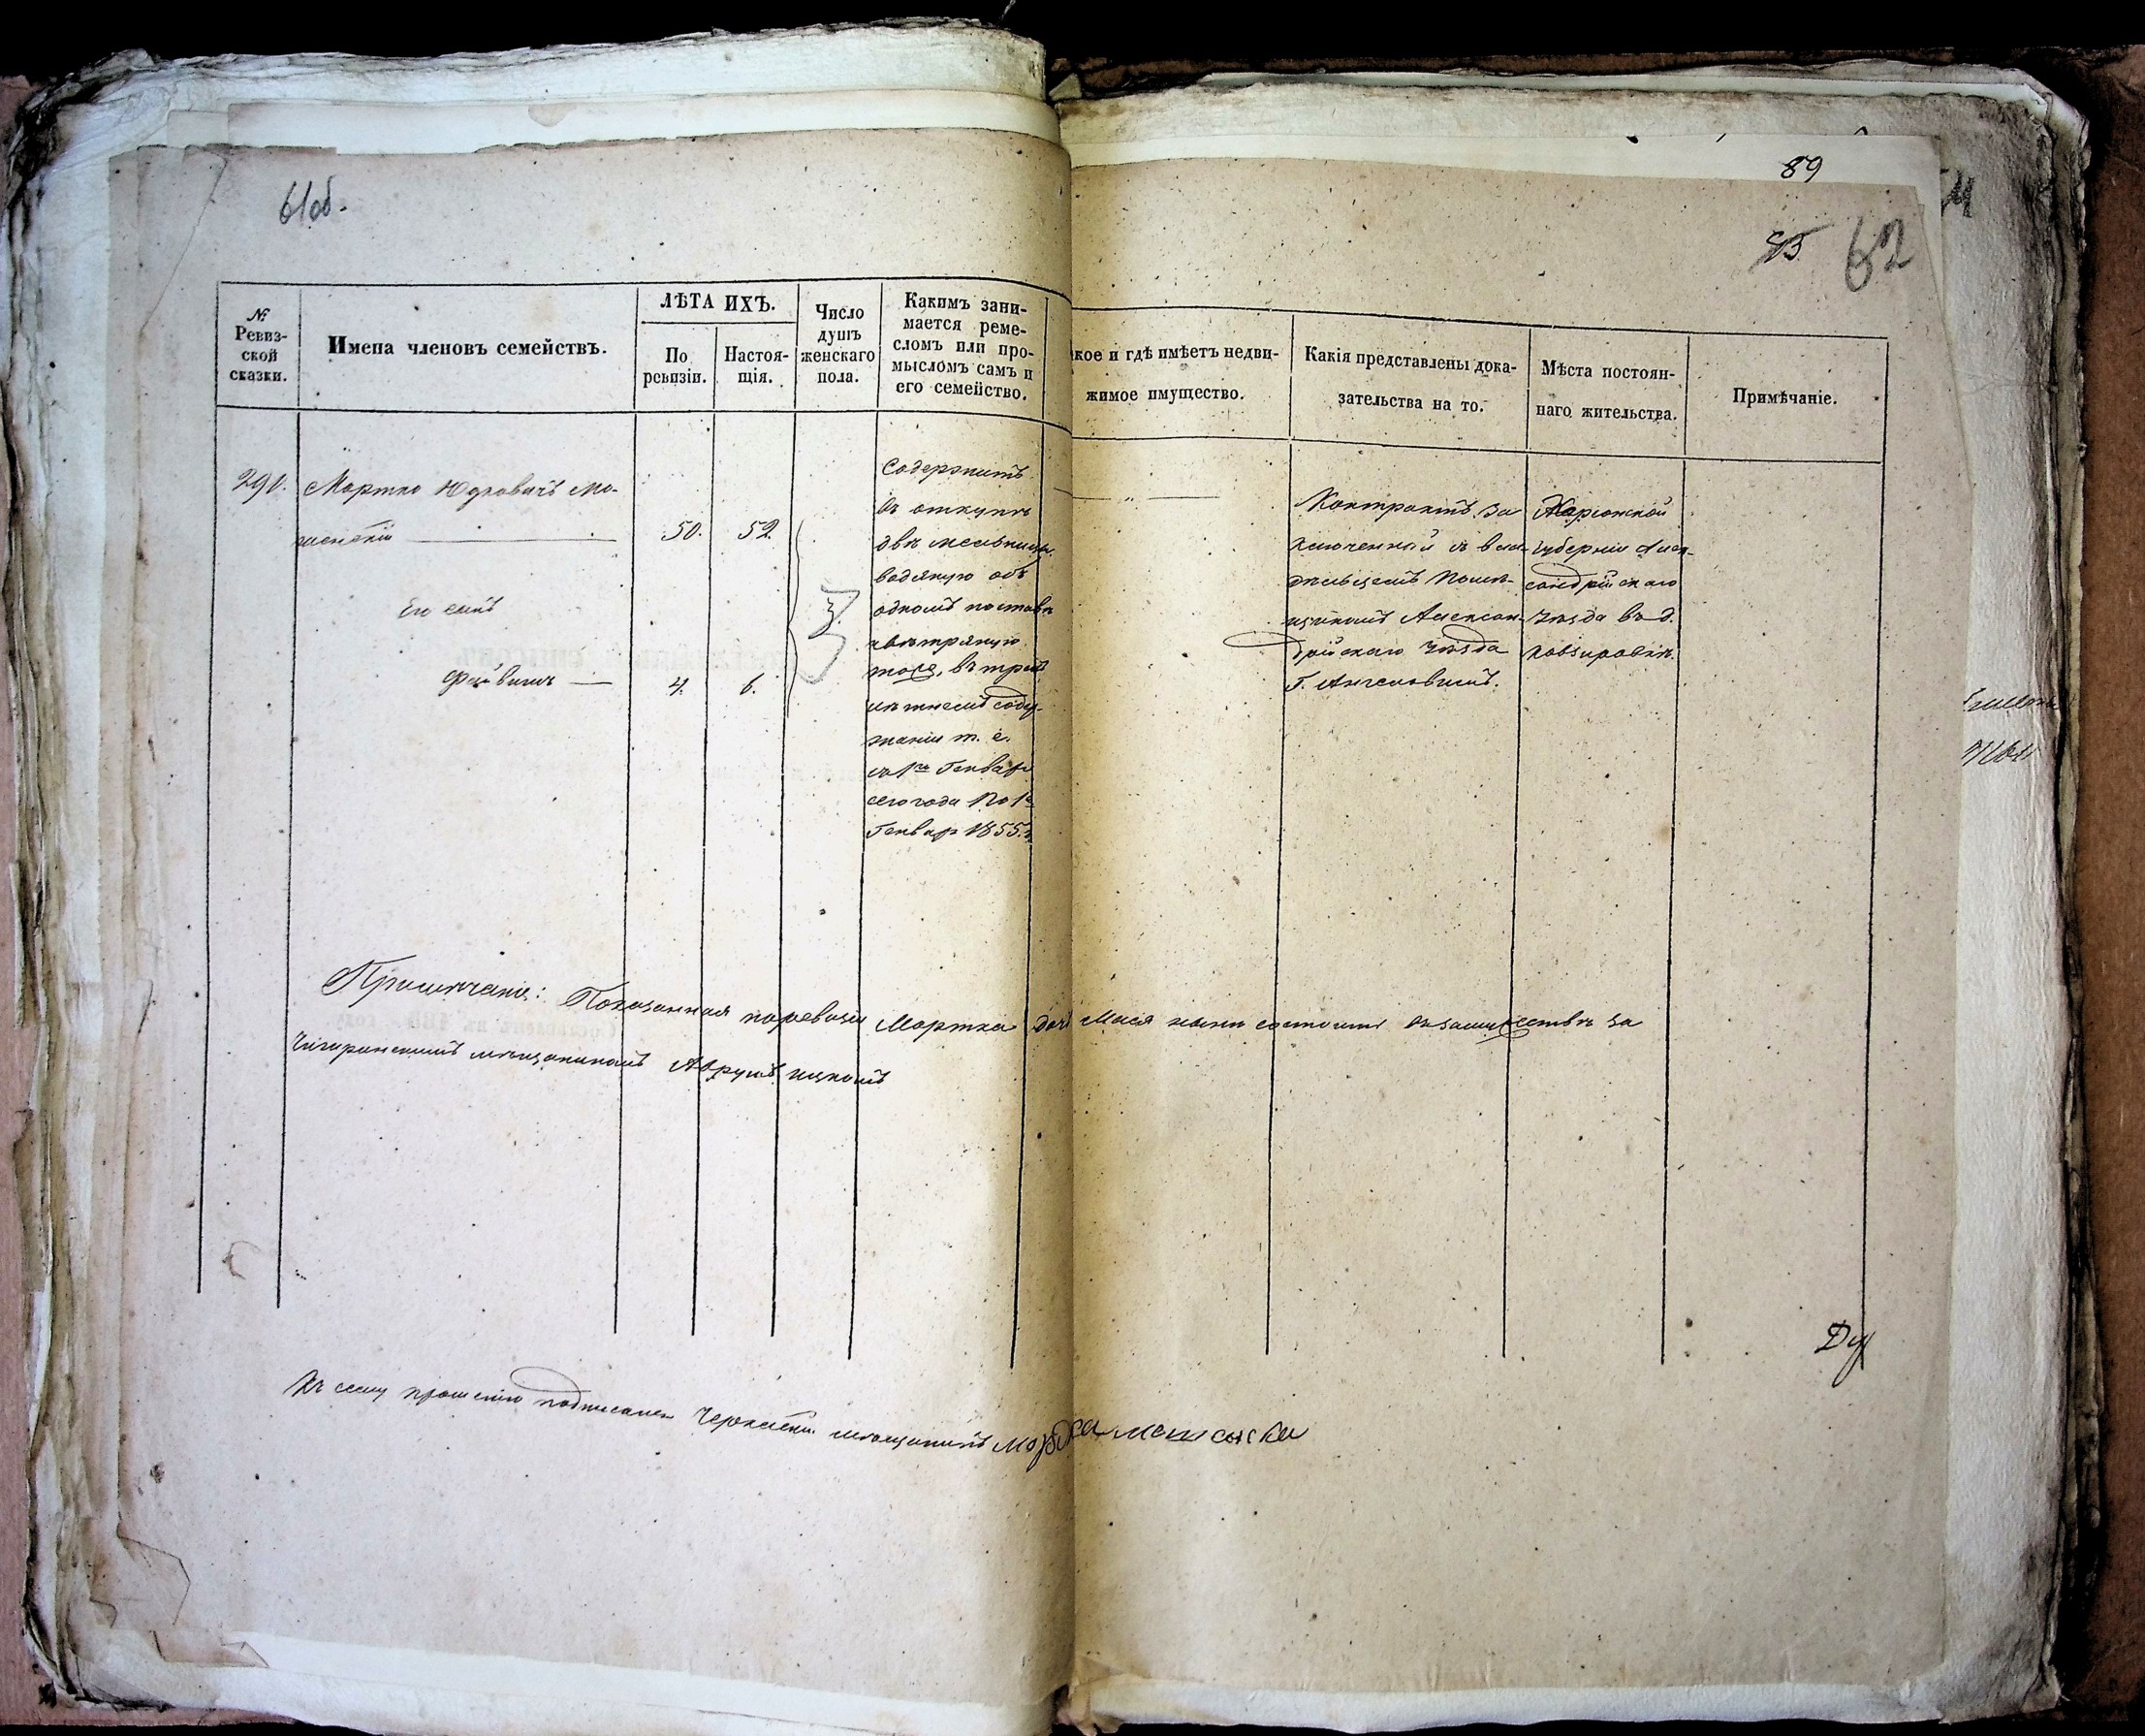 61об.
89
85
62
№ Ревиз-
ской
сказки.
Имена членовъ семействъ.
ЛѢТА ИХЪ.
По
ревизіи.
Настоя-
щія.
Число
душъ
женскаго
пола.
Какимъ зани-
мается реме-
сломъ или про-
мысломъ самъ и
его семейство.
кое и гдѣ имѣетъ недви-
жимое имущество.
Какія представлены дока-
зательства на то.
Мѣста постоян-
наго жительства.
Примѣчаніе.
291.
Мортко Юдковичъ Мо-
шенскій
50.
52.
Его сынъ
Файвишъ
4.
6.
3.
Содержитъ
въ откупѣ
двѣ мельницы
водяную объ
одномъ поставѣ
вѣтряную
тоже, въ трех
лѣтнемъ содер-
жаніи т. е.
съ 1го Генваря
сего года по 1е
Генвар 1855 г.
Контрактъ за
ключенный съ вла-
дѣльцемъ помѣ-
щикомъ Алексан-
дрійскаго уѣзда
Г.
Херсонской
губерніи Алек-
сандрійскаго
уѣзда въ д.
Примѣчаніе: Показанная по ревизіи Мортка дочь Мася нынѣ состоитъ въ замужествѣ за
Чигиринскимъ мѣщаниномъ Аврумъ Ицкомъ
Ду
Къ сему прошенію подписался Черкаскій мѣщанинъ Мордка Мошенски